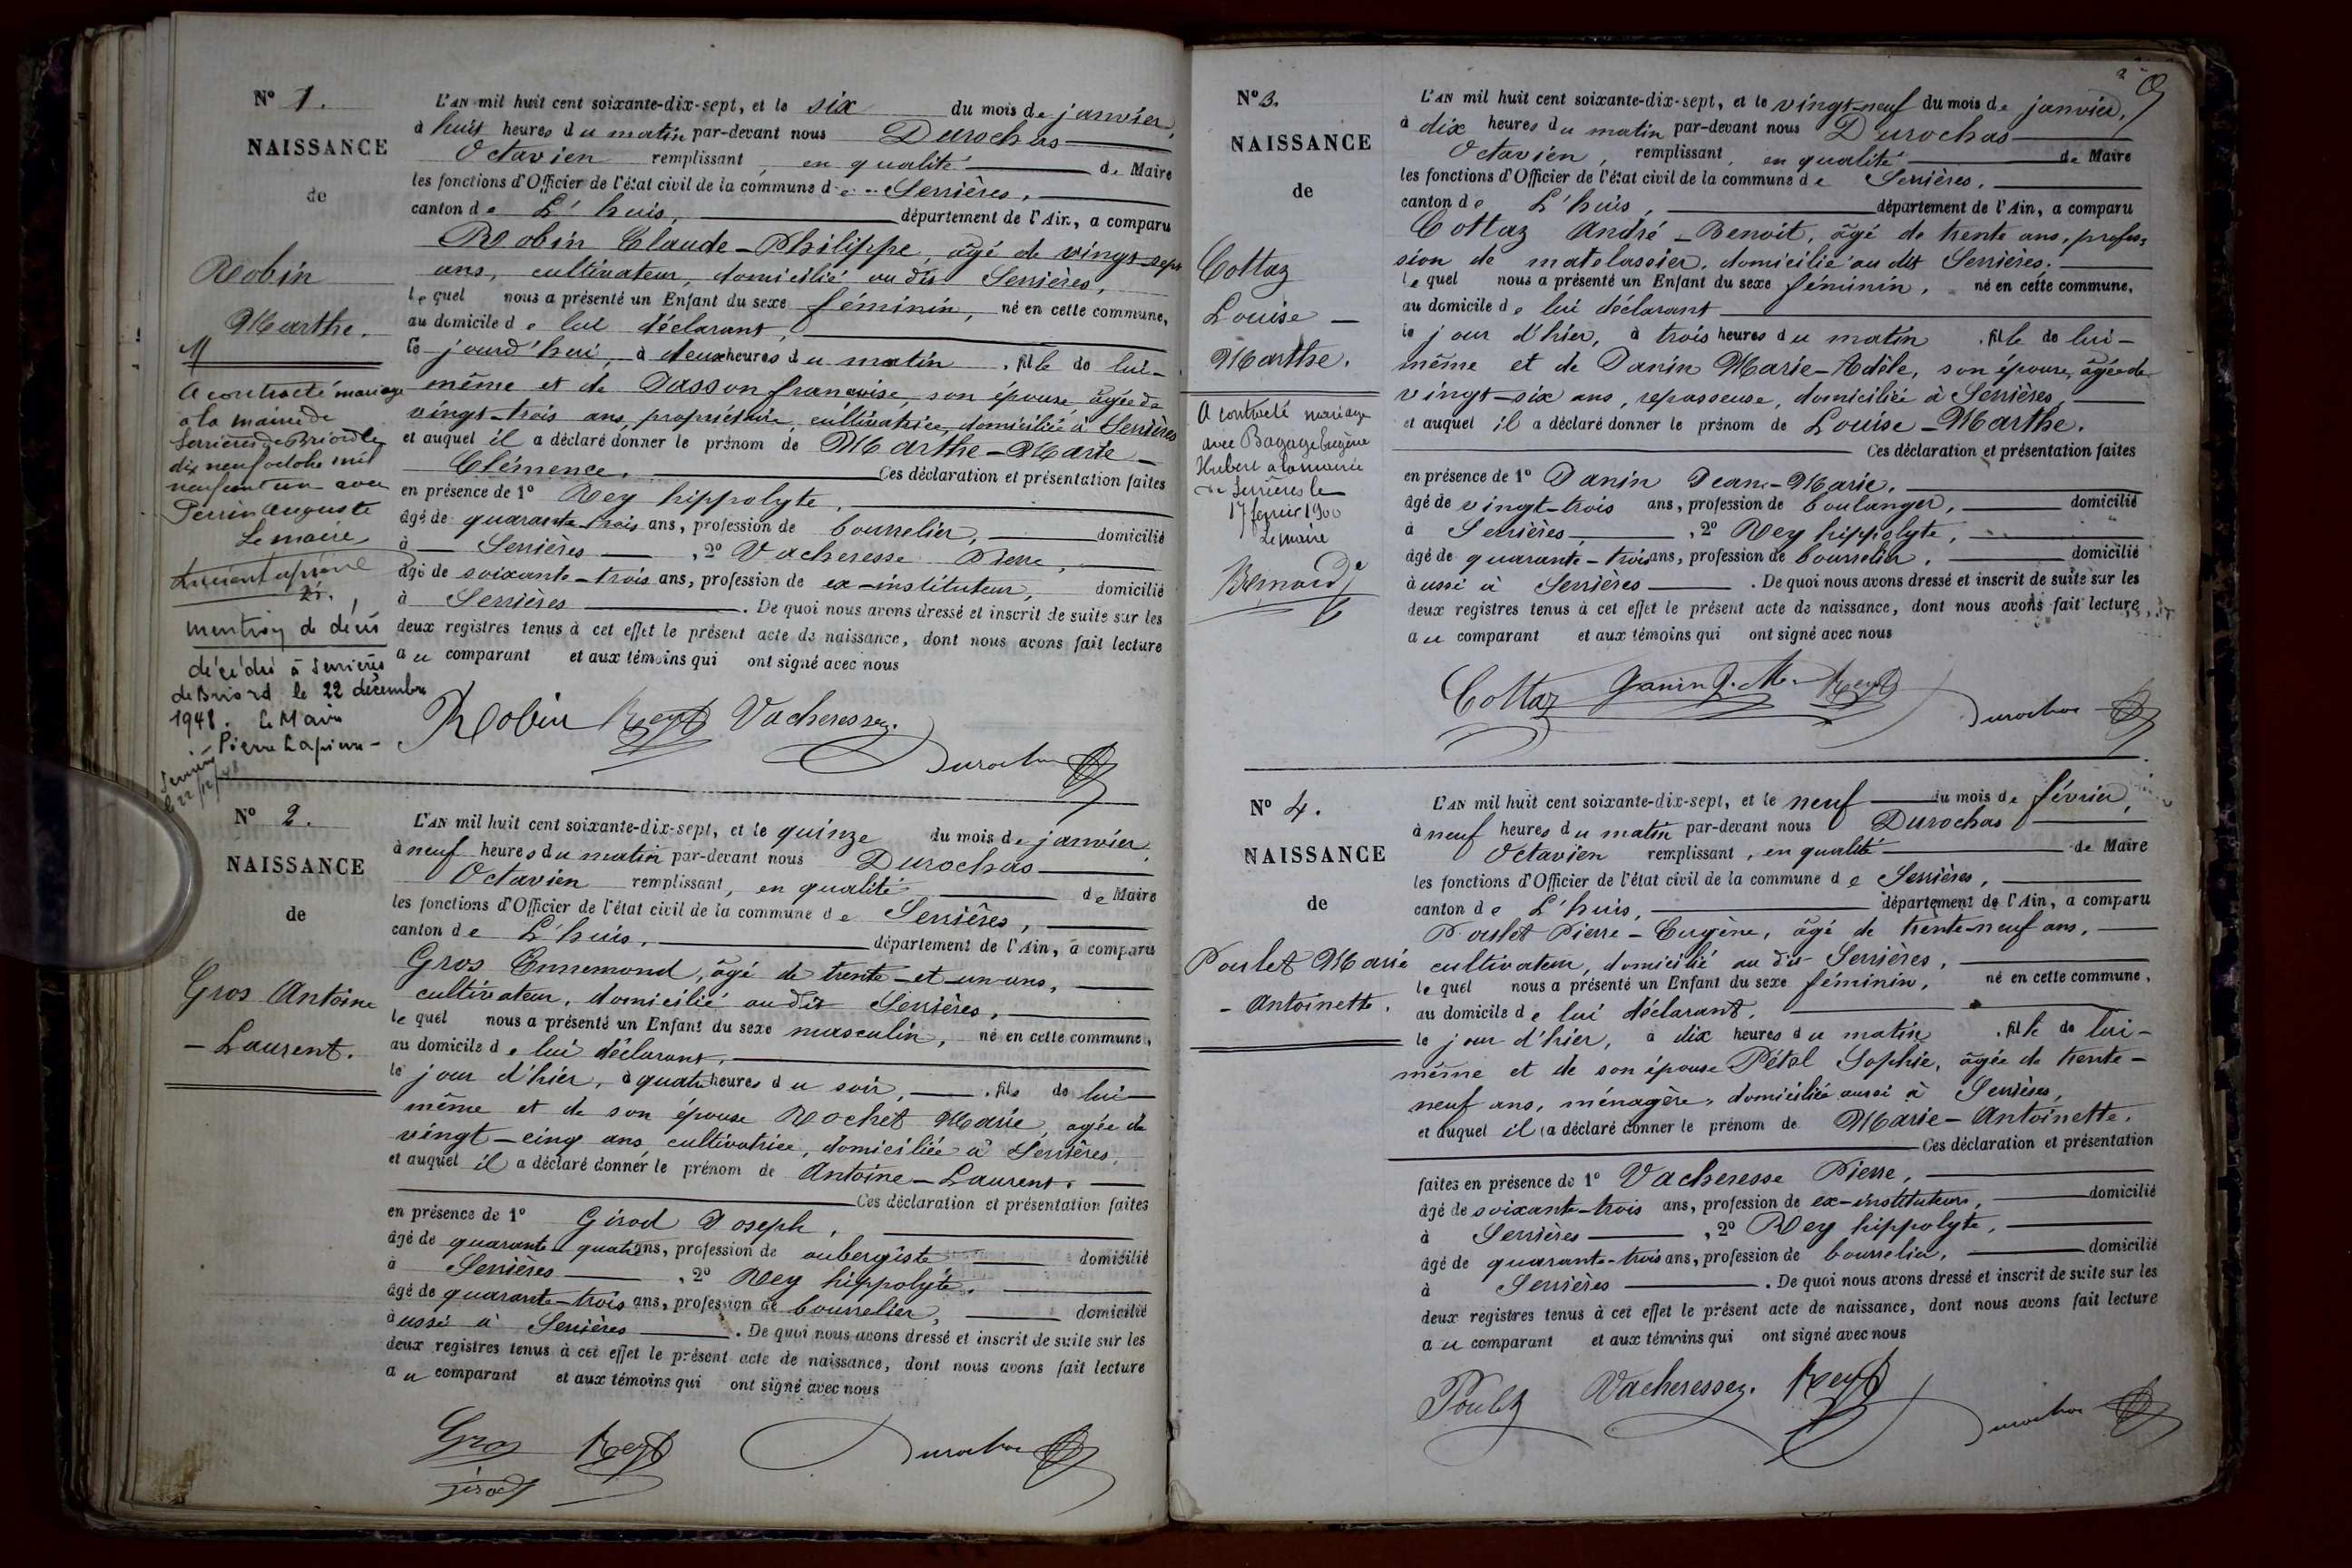 N° 1.
NAISSANCE
de
Robin
Marthe.
A contracté mariage
à la mairie de
Serrières de Briord le
dix neuf octobre mil
neuf cent un avec
Perrin Auguste
Le maire
mention de décès
décédée à Serrières
de Briord le 22 décembre
1948. Le Maire
Pierre Lapierre
L'AN mil huit cent soixante-dix-sept, et le six du mois de janvier,
à huit heures du matin par-devant nous Durochas
Octavien remplissant, en qualité de Maire
les fonctions d'Officier de l'état civil de la commune de Serrières,
canton de L'huis, département de l'Ain, a comparu
Robin Claude-Philippe, âgé de vingt-sept
ans, cultivateur, domicilié au dit Serrières,
lequel nous a présenté un Enfant du sexe féminin, né en cette commune,
au domicile de lui déclarant,
le jourd'hui, à deux heures du matin, fille de lui-
même et de Jasson françoise, son épouse âgée de
vingt-trois ans, propriétaire, cultivatrice, domiciliée à Serrières
et auquel il a déclaré donner le prénom de Marthe-Marie-
Clémence. Ces déclaration et présentation faites
en présence de 1° Rey hippolyte,
âgé de quarante-trois ans, profession de bourrelier, domicilié
à Serrières, 2° Vacheresse Pierre,
âgé de soixante-trois ans, profession de ex-instituteur, domicilié
à Serrières. De quoi nous avons dressé et inscrit de suite sur les
deux registres tenus à cet effet le présent acte de naissance, dont nous avons fait lecture
au comparant et aux témoins qui ont signé avec nous
Robin Rey Vacheresse.
Durochas
N° 2.
NAISSANCE
de
Gros Antoine
- Laurent.
L'AN mil huit cent soixante-dix-sept, et le quinze du mois de janvier,
à neuf heures du matin par-devant nous Durochas
Octavien remplissant, en qualité de Maire
les fonctions d'Officier de l'état civil de la commune de Serrières,
canton de L'huis, département de l'Ain, a comparu
Gros Ennemond, âgé de trente-et-un ans,
cultivateur, domicilié au dit Serrières,
lequel nous a présenté un Enfant du sexe masculin, né en cette commune,
au domicile de lui déclarant,
le jour d'hier, à quatre heures du soir, fils de lui-
même et de son épouse Rochet Marie, agée de
vingt-cinq ans, cultivatrice, domiciliée à Serrières,
et auquel il a déclaré donner le prénom de Antoine-Laurent.
Ces déclaration et présentation faites
en présence de 1° Girod Joseph,
âgé de quarante-quatre ans, profession de aubergiste domicilié
à Serrières, 2° Rey hippolyte,
âgé de quarante-trois ans, profession de bourrelier, domicilié
aussi à Serrières. De quoi nous avons dressé et inscrit de suite sur les
deux registres tenus à cet effet le présent acte de naissance, dont nous avons fait lecture
au comparant et aux témoins qui ont signé avec nous
Gros Rey Durochas
girod
N° 3.
NAISSANCE
de
Cottaz
Louise -
Marthe.
A contracté mariage
avec Bagage Eugène
Hubert à la mairie
de Serrières le
17 février 1900
Le Maire
Bernard
L'AN mil huit cent soixante-dix-sept, et le vingt-neuf du mois de janvier,
à dix heures du matin par-devant nous Durochas
Octavien, remplissant, en qualité de Maire
les fonctions d'Officier de l'état civil de la commune de Serrières,
canton de L'huis, département de l'Ain, a comparu
Cottaz André-Benoit, âgé de trente ans, profes-
sion de matelassier, domicilié au dit Serrières.
lequel nous a présenté un Enfant du sexe féminin, né en cette commune,
au domicile de lui déclarant
le jour d'hier, à trois heures du matin, fille de lui-
même et de Janin Marie-Adèle, son épouse, âgée de
vingt-six ans, repasseuse, domiciliée à Serrières,
et auquel il a déclaré donner le prénom de Louise-Marthe.
Ces déclaration et présentation faites
en présence de 1° Janin Jean-Marie,
âgé de vingt-trois ans, profession de boulanger, domicilié
à Serrières, 2° Rey hippolyte,
âgé de quarante-trois ans, profession de bourrelier, domicilié
aussi à Serrières. De quoi nous avons dressé et inscrit de suite sur les
deux registres tenus à cet effet le présent acte de naissance, dont nous avons fait lecture
au comparant et aux témoins qui ont signé avec nous
Cottaz Janin J. M. Rey
Durochas
N° 4.
NAISSANCE
de
Poulet Marie
- Antoinette.
L'AN mil huit cent soixante-dix-sept, et le neuf du mois de février,
à neuf heures du matin par-devant nous Durochas
Octavien remplissant, en qualité de Maire
les fonctions d'Officier de l'état civil de la commune de Serrières,
canton de L'huis, département de l'Ain, a comparu
Poulet Pierre-Eugène, âgé de trente-neuf ans,
cultivateur, domicilié au dit Serrières,
lequel nous a présenté un Enfant du sexe féminin, né en cette commune,
au domicile de lui déclarant,
le jour d'hier, à dix heures du matin, fille de lui-
même et de son épouse Pétel Sophie, âgée de trente-
neuf ans, ménagère, domiciliée aussi à Serrières,
et auquel il a déclaré donner le prénom de Marie-Antoinette.
Ces déclaration et présentation
faites en présence de 1° Vacheresse Pierre,
âgé de soixante-trois ans, profession de ex-instituteur, domicilié
à Serrières, 2° Rey hippolyte,
âgé de quarante-trois ans, profession de bourrelier, domicilié
à Serrières. De quoi nous avons dressé et inscrit de suite sur les
deux registres tenus à cet effet le présent acte de naissance, dont nous avons fait lecture
au comparant et aux témoins qui ont signé avec nous
Poulet Vacheresse. Rey
Durochas